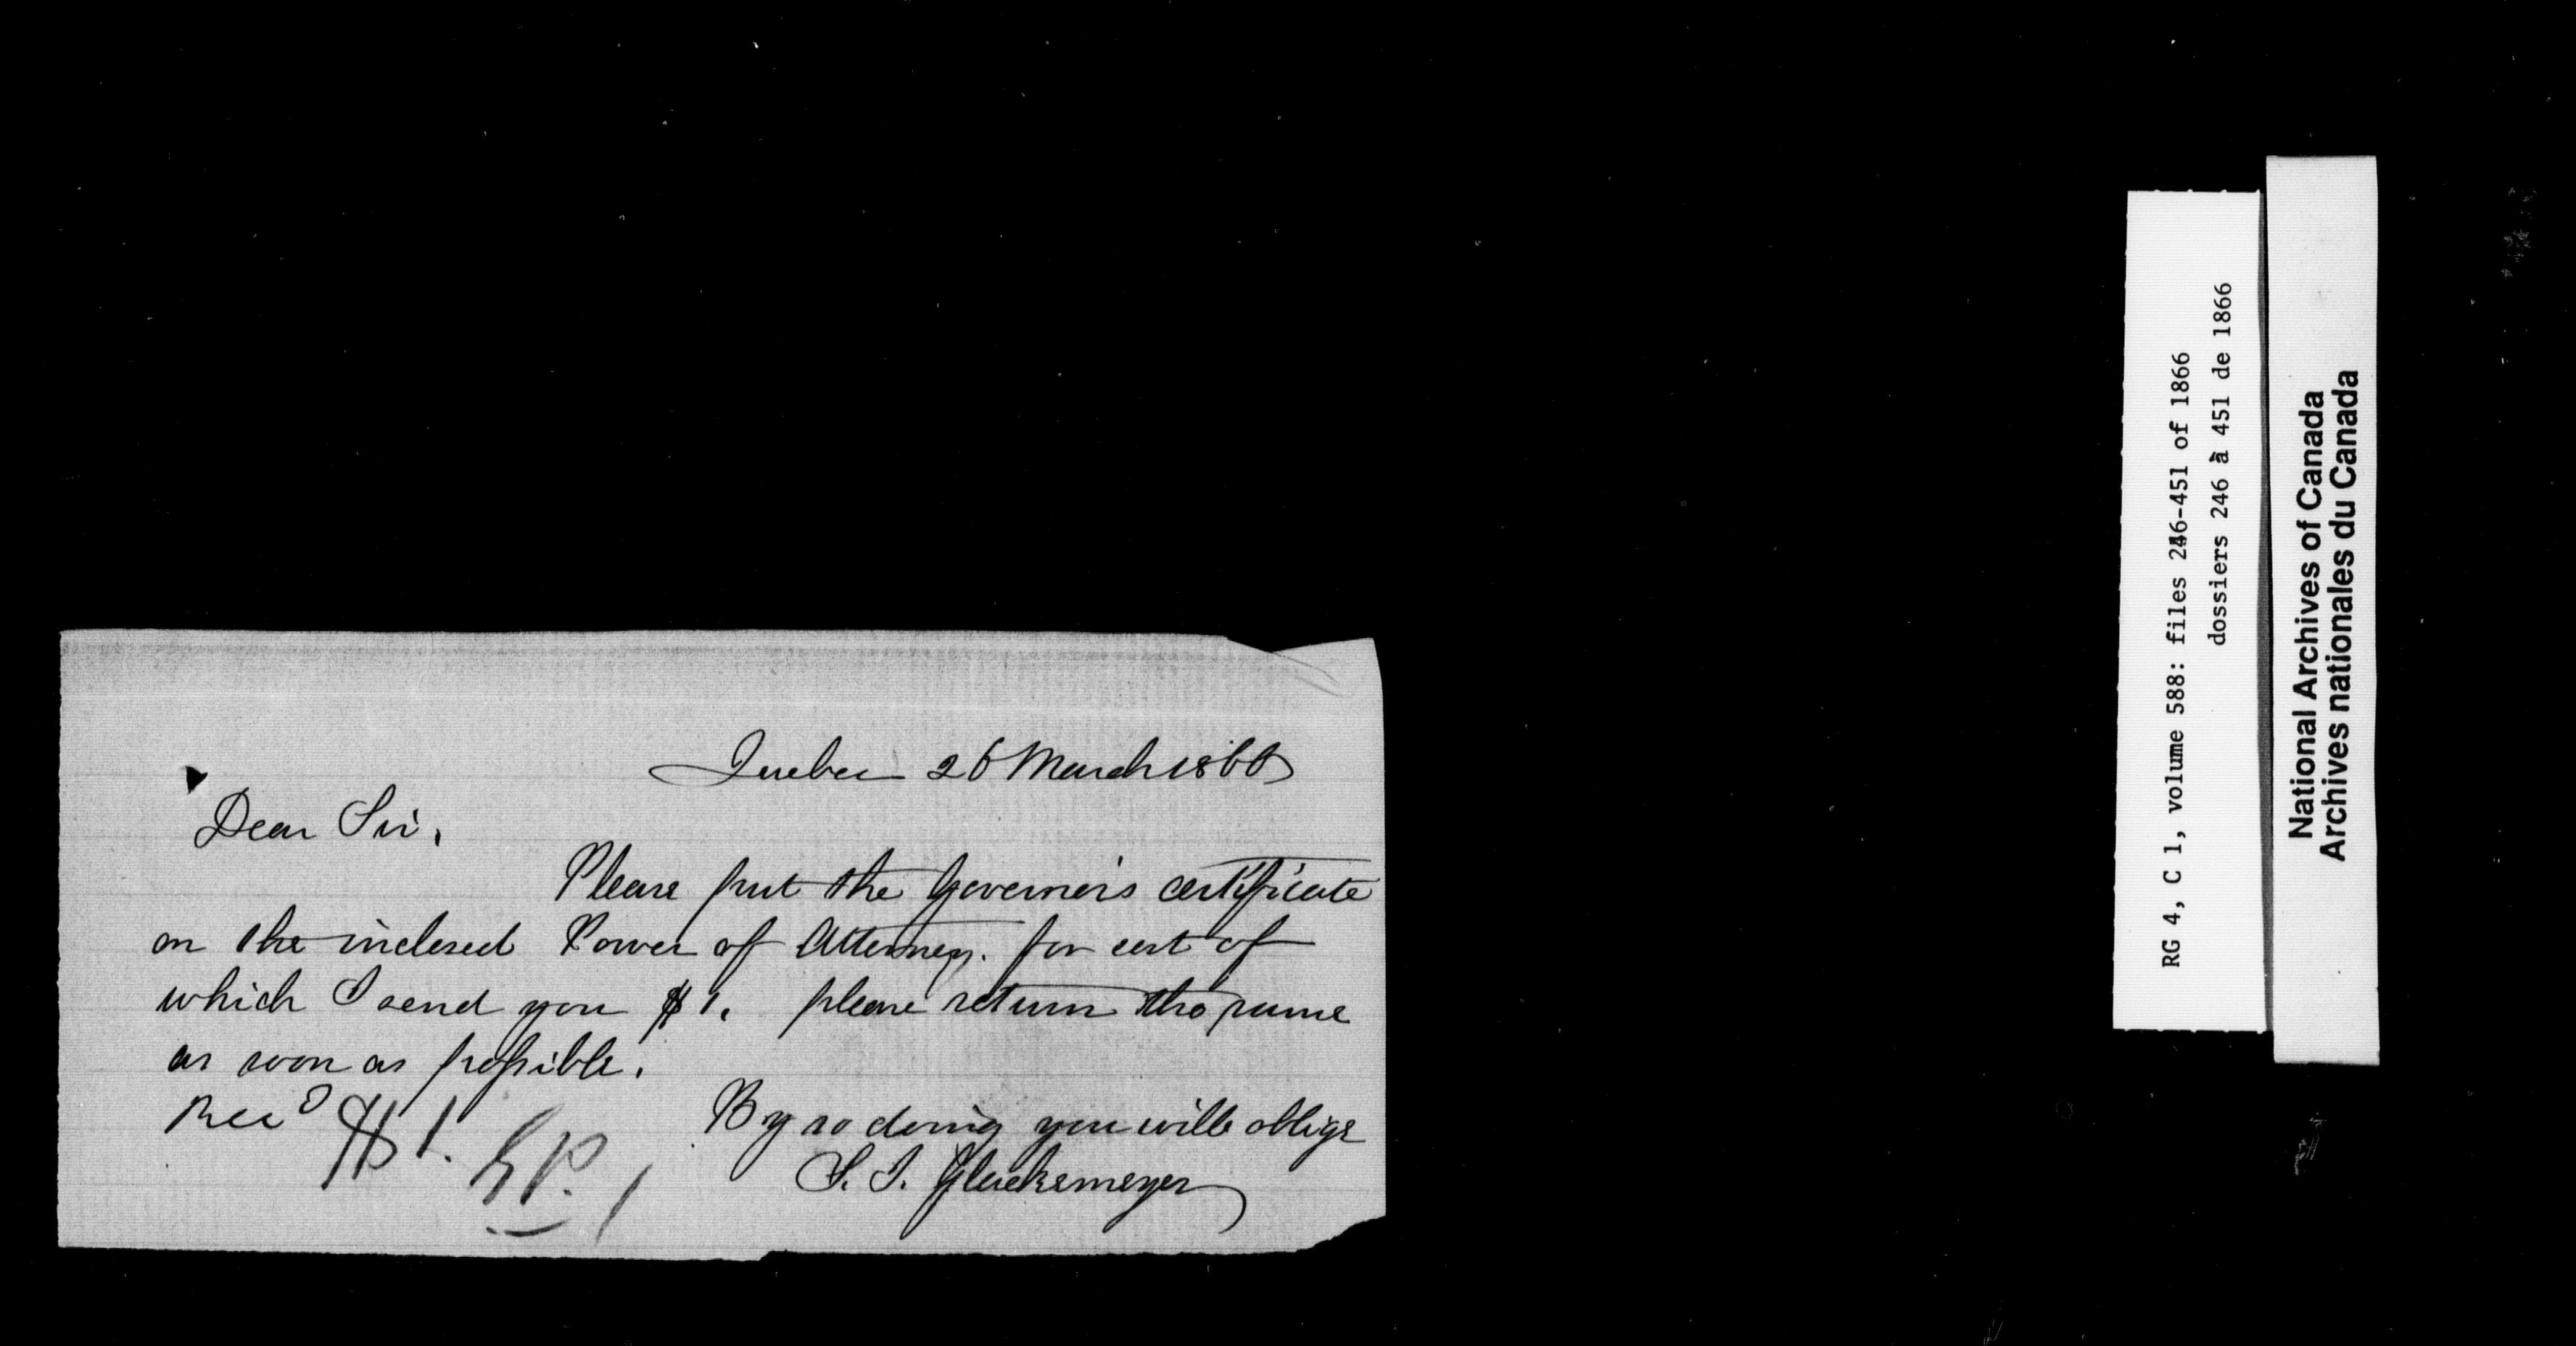 Quebec 26 March 1866
Dear Sir,
Please put the Governor's certificate
on the inclosed Power of Attorney. for cost of
which I send you $1. please return the same
as soon as possible.
By so doing you will oblige
Rec'd $1.
Gluckemeyer
RG 4, C 1, volume 588: files 246-451 of 1866
dossiers 246 à 451 de 1866
National Archives of Canada
Archives nationales du Canada